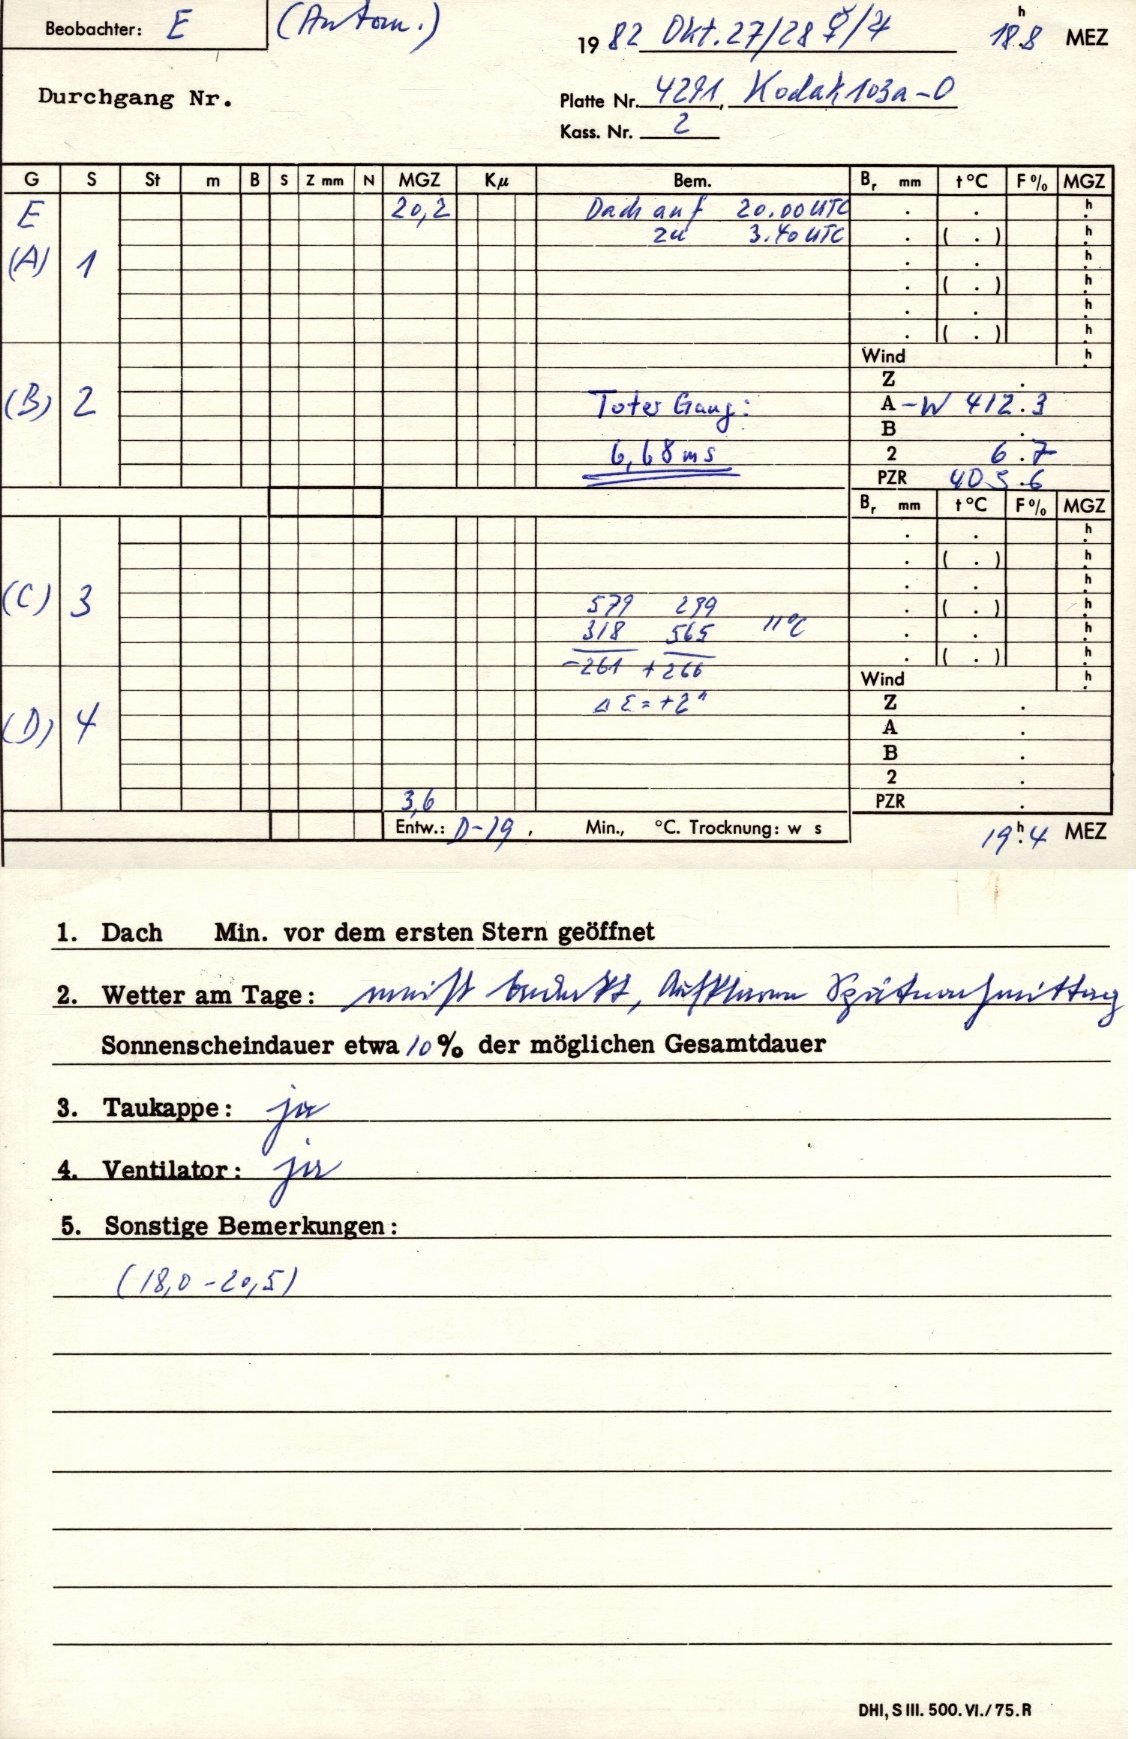 Beobachter: E (Autom.)
1982 Okt. 27/28 ☿/♃ 18h8 MEZ
Durchgang Nr.
Platte Nr. 4291, Kodak 103a-O
Kass. Nr. 2
G S St m B S Z mm N MGZ Kμ Bem. Br mm t °C F % MGZ
E 20,2 Dach auf 20.00 UTC . . h
zu 3.40 UTC . ( . ) h
(A) 1 . . h
. ( . ) h
. . h
. ( . ) h
Wind h
Z .
(B) 2 Toter Gang: A -W 412.3
B .
6,68 ms 2 6.7
PZR 405.6
Br mm t °C F % MGZ
. . h
. ( . ) h
. . h
(C) 3 579 299 . ( . ) h
318 565 11°C . . h
-261 +266 . ( . ) h
Wind h
Δ Σ = +2" Z .
(D) 4 A .
B .
2 .
3,6 PZR .
Entw.: D-19, Min., °C. Trocknung: w s
19h.4 MEZ
1. Dach Min. vor dem ersten Stern geöffnet
2. Wetter am Tage: meist bedeckt, Aufklaren Spätnachmittag
Sonnenscheindauer etwa 10% der möglichen Gesamtdauer
3. Taukappe: ja
4. Ventilator: ja
5. Sonstige Bemerkungen:
(18,0 - 20,5)
DHI, S III. 500. VI./75. R